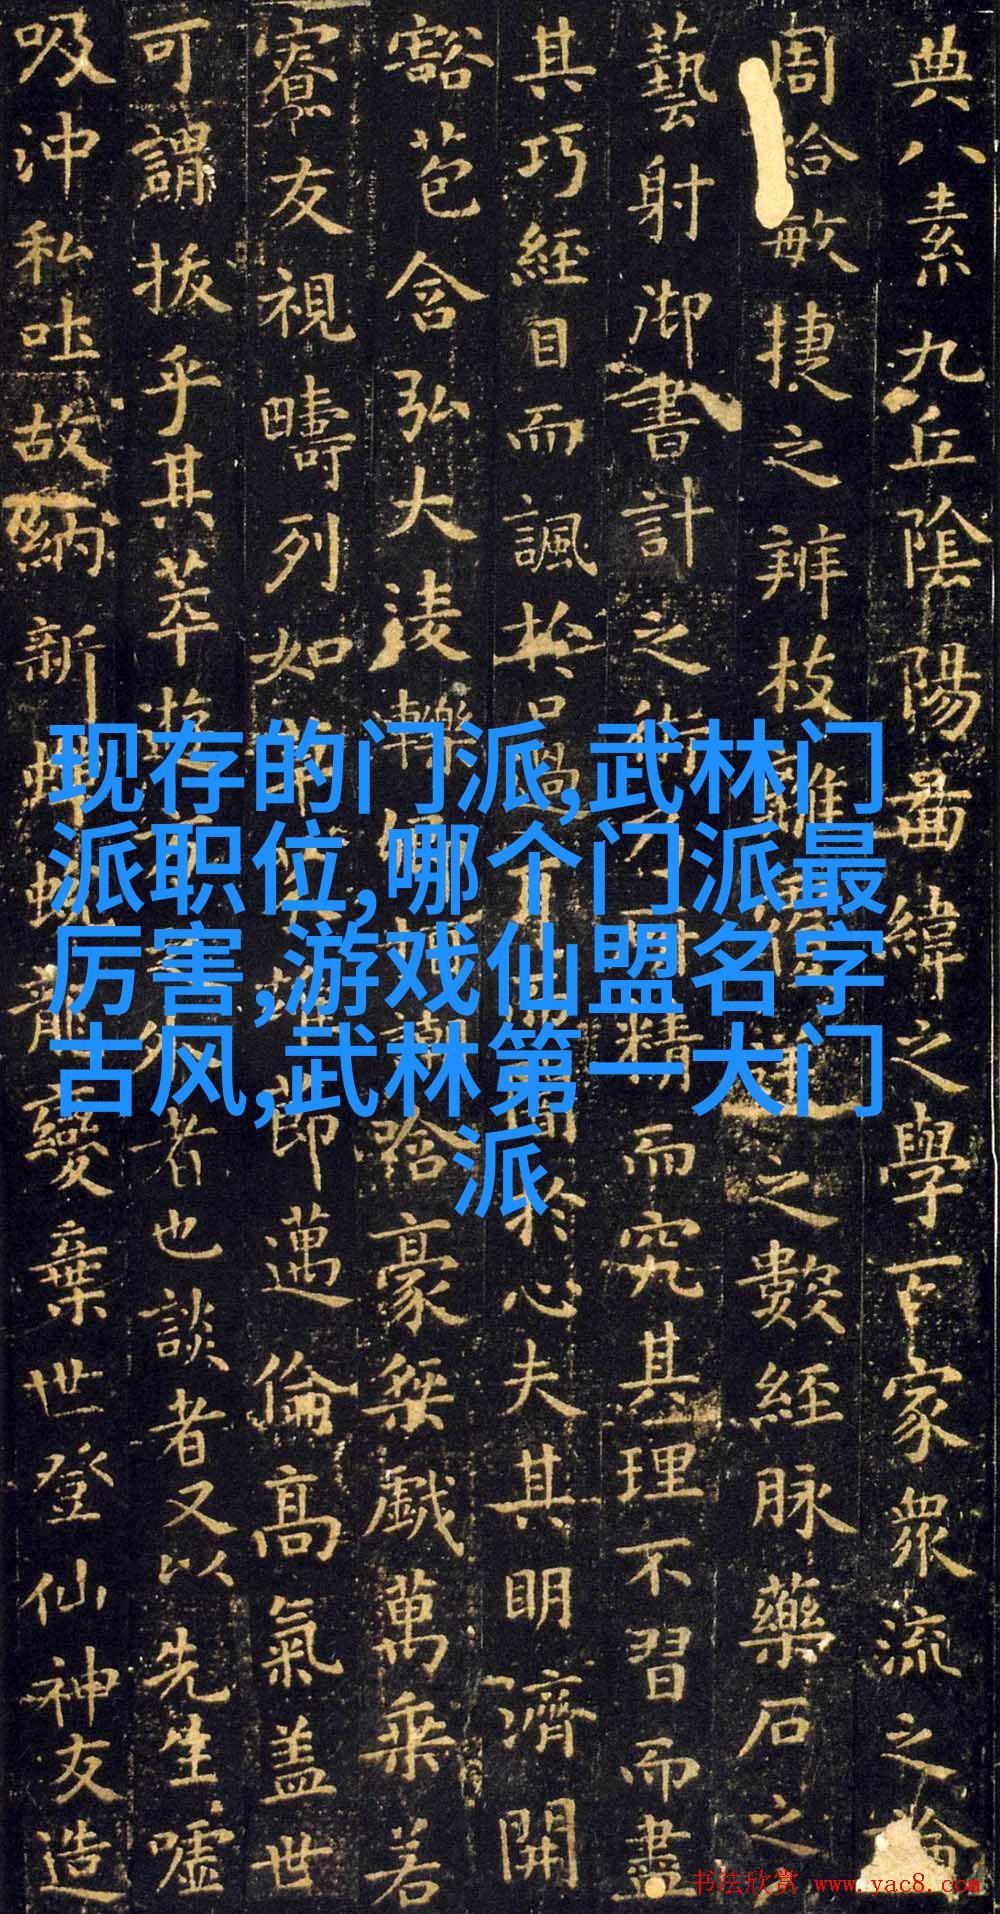 典八素九丘陰陽啚緯之學百家衆流之論
周給敏捷之辨枝離之數經脉藥石之
藝射御書計之術精而究其理不習而盡
其巧經目而諷於口過於心夫其明濟開
豁苞含弘大淩轢哈豪桀戱萬乘若
寮友視疇列如節邁倫高氣盖世
可謂拔乎其萃遊者也談者又以先生噓
吸沖和吐故納新蟬蛻龍變棄世登仙神友造
现存的门派,武林门
派职位,哪个门派最
厉害,游戏仙盟名字
古风,武林第一大门
派
书法欣赏 www.yac8.com